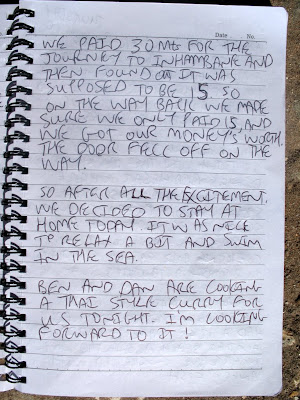 Date No.
WE PAID 30 Mts FOR THE
JOURNEY TO INHAMBANE AND
THEN FOUND OUT IT WAS
SUPPOSED TO BE 15. SO
ON THE WAY BACK WE MADE
SURE WE ONLY PAID 15, AND
WE GOT OUR MONEY'S WORTH.
THE DOOR FELL OFF ON THE
WAY.
SO AFTER ALL THE EXCITEMENT,
WE DECIDED TO STAY AT
HOME TODAY. IT WAS NICE
TO RELAX A BIT AND SWIM
IN THE SEA.
BEN AND DAN ARE COOKING
A THAI STYLE CURRY FOR
US TONIGHT. I'M LOOKING
FORWARD TO IT!